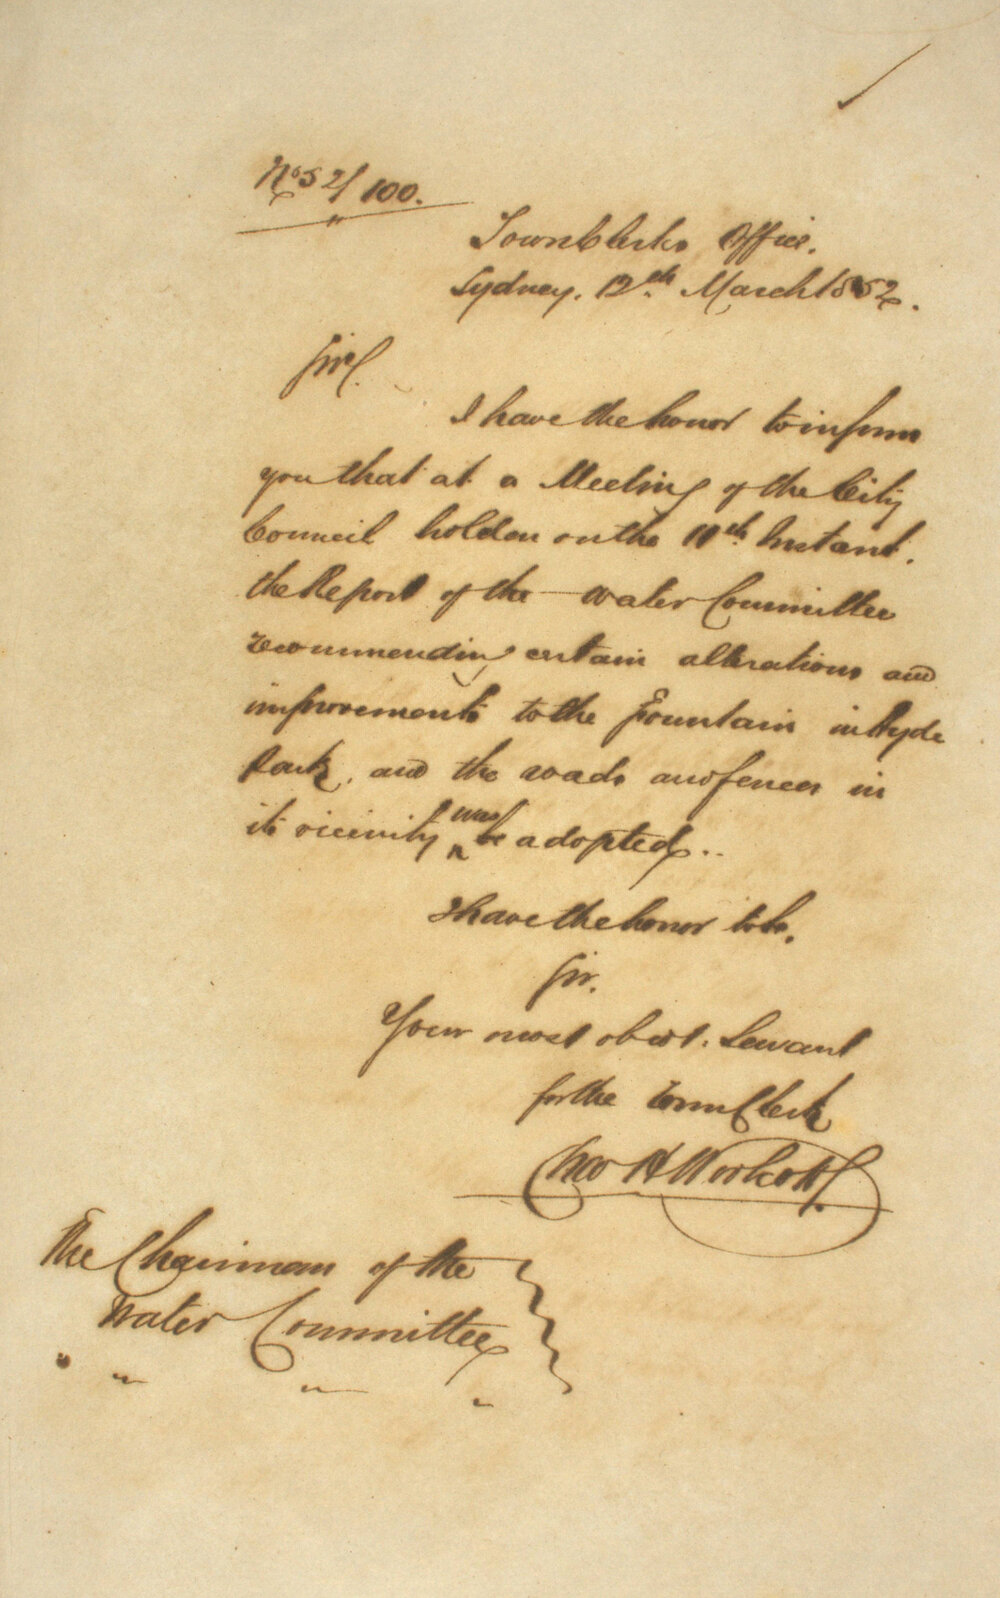 No 52/100.
Town Clerks Office.
Sydney. 12th March 1852.
Sir,
I have the honor to inform
you that at a Meeting of the City
Council holden on the 11th Instant.
the Report of the Water Committee
recommending certain alterations and
improvements to the Fountain in Hyde
Park, and the roads and fences in
its vicinity was be adopted..
I have the honor to be.
Sir.
Your most obedt. Servant
for the Town Clerk
Chas H Woolcott
The Chairman of the
Water Committee